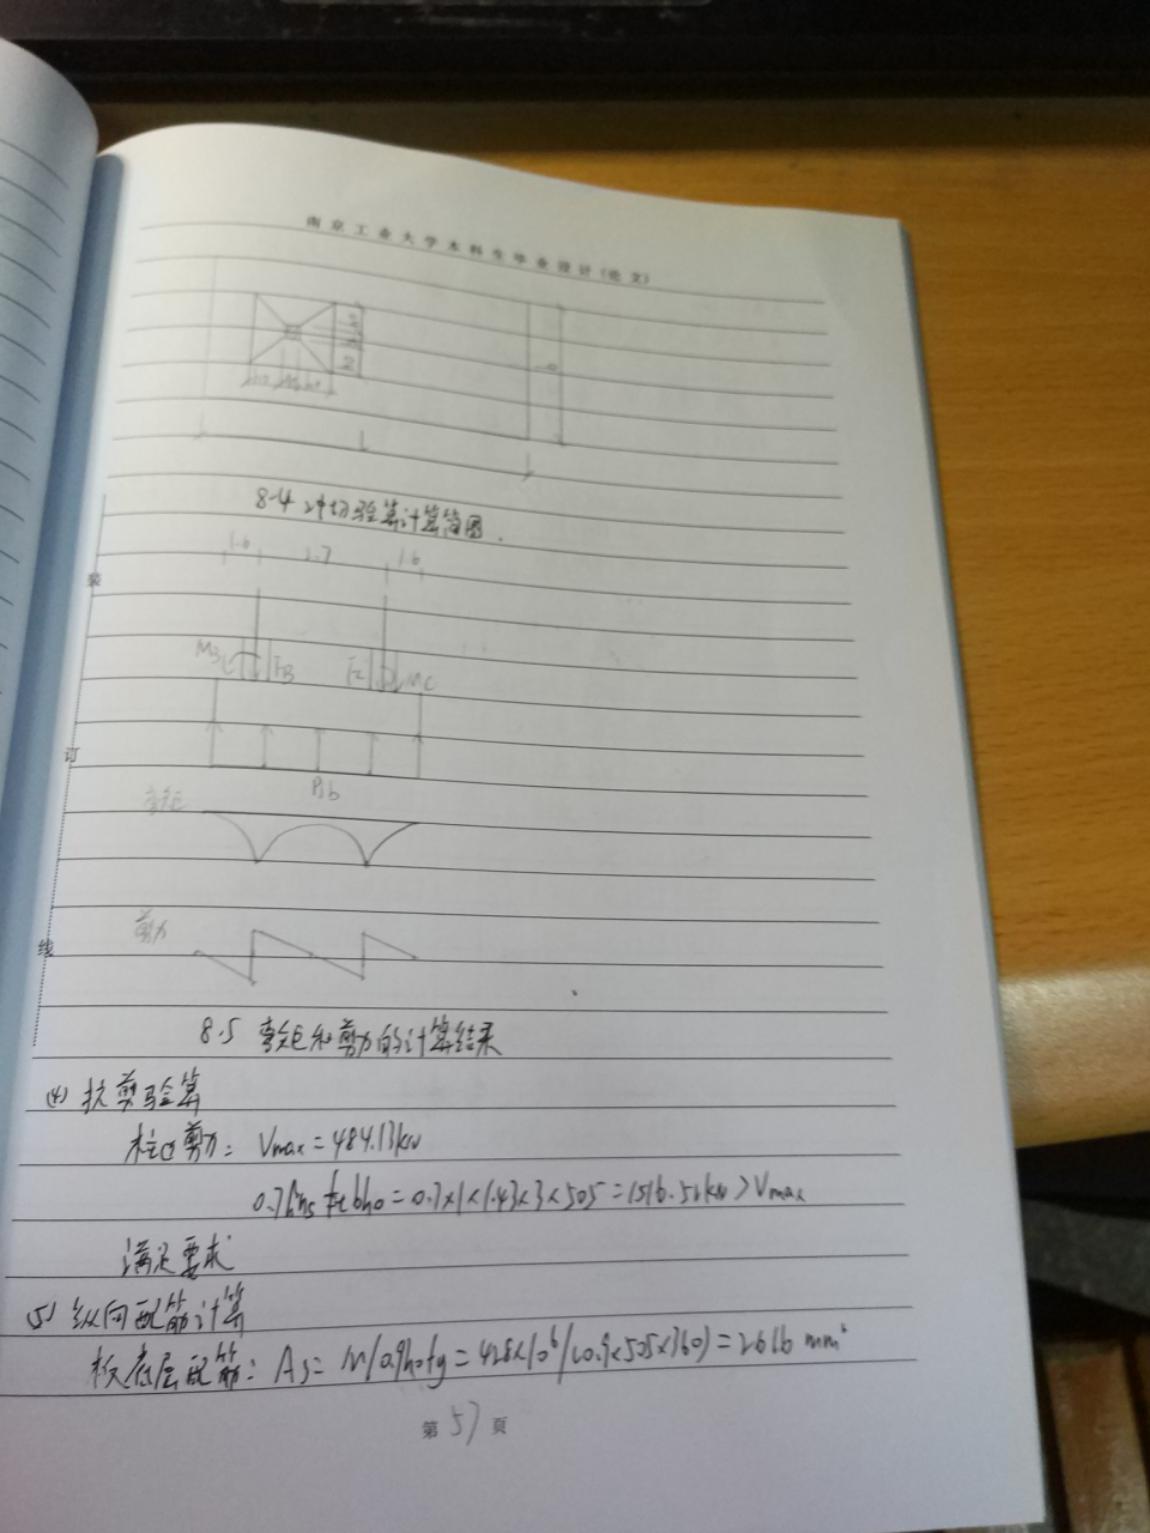 南京工业大学本科生毕业设计(论文)
8-4 冲切验算计算简图.
1.6 2.7 1.6
MB FB FC MC
装
订
Pjb
弯矩
剪力
线
8.5 弯矩和剪力的计算结果
(4) 抗剪验算
柱边剪力: Vmax = 484.13kN
0.7βhsftbh0 = 0.7×1×1.43×3×505 = 1516.52kN > Vmax
满足要求
(5) 纵向配筋计算
板底层配筋: As = M/0.9h0fy = 428×10⁶/(0.9×505×360) = 2616 mm²
第 57 页